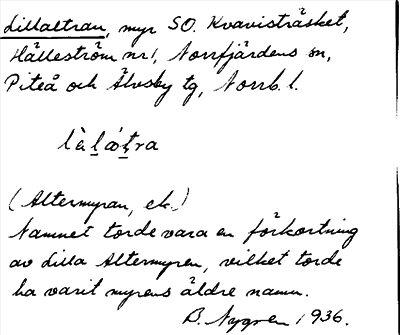 Lillaltran, myr SO. Kvavisträsket,
Hälleström nr 1, Norrfjärdens sn,
Piteå och Älvsby tg, Norrb. l.
(Altermyran, ek.)
Namnet torde vara en förkortning
av Lilla Altermyren, vilket torde
ha varit myrens äldre namn.
B. Nygren 1936.